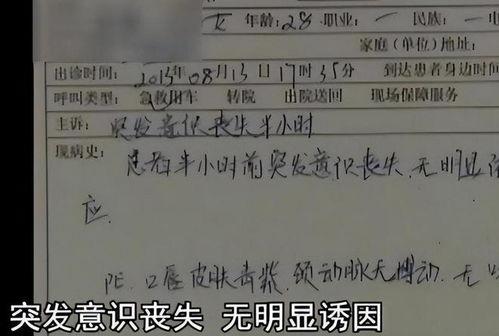 女 年龄:28 职业: 一 民族: 一
家庭(单位)地址:
出诊时间: 2013年08月13日17时35分 到达患者身边时间
呼叫类型: 急救用车 转院 出院送回 现场保障服务
主诉: 突发意识丧失半小时
现病史: 患者半小时前突发意识丧失,无明显
应.
PE. 口唇皮肤青紫,颈动脉无搏动.无
突发意识丧失 无明显诱因